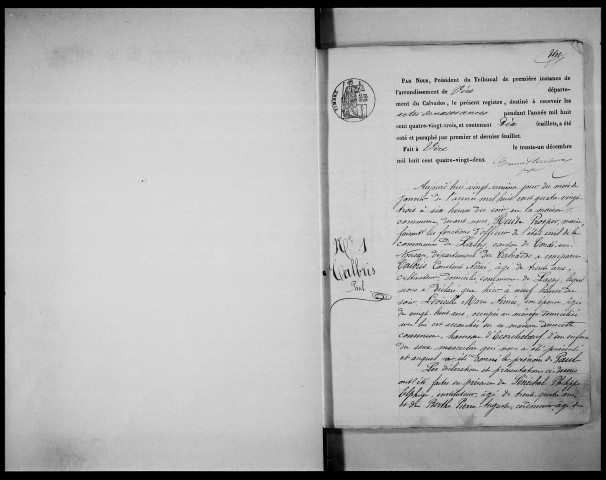 PAR NOUS, Président du Tribunal de première instance de
l'arrondissement de Vire départe-
ment du Calvados, le présent registre, destiné à recevoir les
actes de naissances pendant l'année mil huit
cent quatre-vingt-trois, et contenant Dix feuillets, a été
coté et paraphé par premier et dernier feuillet.
Fait à Vire le trente-un décembre
mil huit cent quatre-vingt-deux.
TIMBRE
No 1
Talbris
Paul
Aujourd'hui vingt unième jour du mois de
janvier de l'année mil huit cent quatre vingt
trois à six heures du soir, en la maison
commune devant nous, Prosper, maire
faisant les fonctions d'officier de l'état civil de la
commune de Lassy, canton de Condé-sur-
Noireau, département du Calvados a comparu
Talbris Constant Aimé, âgé de trente ans,
cultivateur, domicilié commune de Lassy, lequel
nous a déclaré que hier à neuf heures du
soir, Marie Aimée, son épouse, âgée
de vingt huit ans, occupée au ménage domiciliée
avec lui est accouchée en sa maison
commune, hameau d'un enfant
du sexe masculin qui nous a été présenté
et auquel il a été donné le prénom de Paul
Les déclaration et présentation ci dessus
ont été faites en présence de Sénéchal Philippe
instituteur, âgé de trente quatre ans
et de Pierre Auguste, cordonnier âgé de